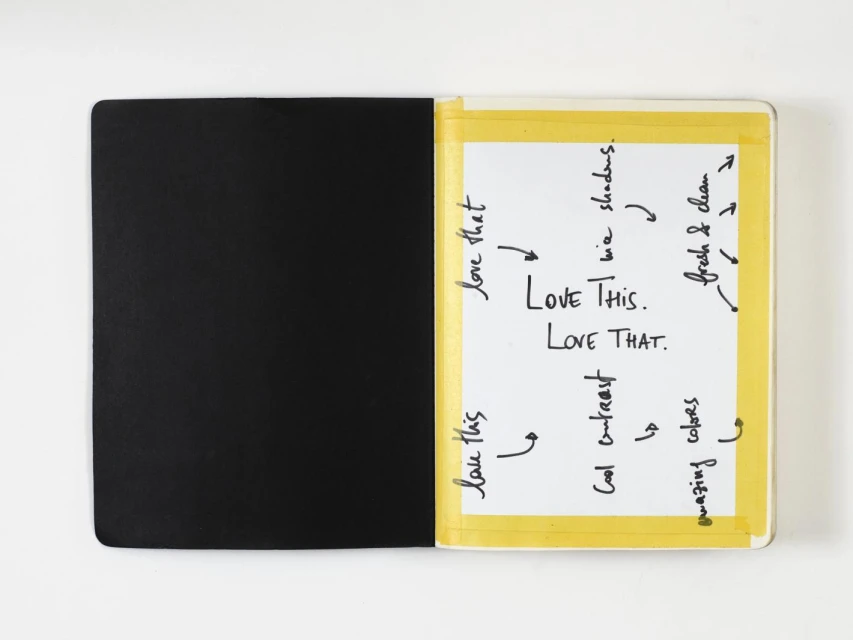 love this
love that
Love This.
Love That.
Cool contrast
nice shadows.
amazing colors
fresh & clean